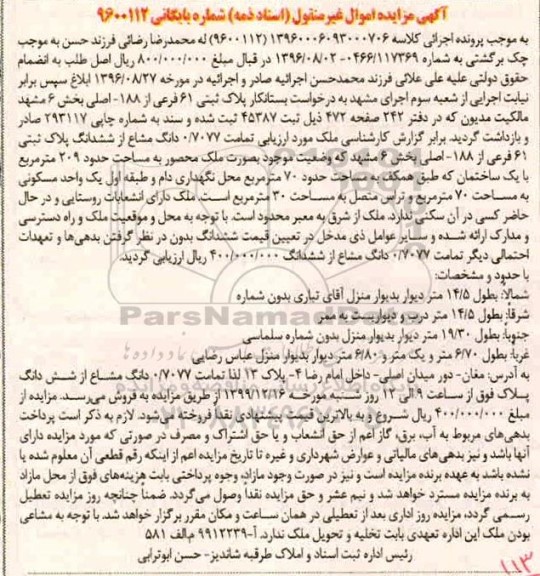 آگهی مزایده اموال غیرمنقول (اسناد ذمه) شماره بایگانی ۹۶۰۰۱۱۲
به موجب پرونده اجرائی کلاسه ۱۳۹۶۰۰۰۶۰۹۳۰۰۰۷۰۶ (۹۶۰۰۱۱۲) له محمدرضا رضائی فرزند حسن به موجب
چک برگشتی به شماره ۰۴۶۶/۱۱۷۳۶۹-۱۳۹۶/۰۸/۰۲ در قبال مبلغ ۸۰۰/۰۰۰/۰۰۰ ریال اصل طلب به انضمام
حقوق دولتی علیه علی علائی فرزند محمدحسن اجرائیه صادر و اجرائیه در مورخه ۱۳۹۶/۰۸/۲۷ ابلاغ سپس برابر
نیابت اجرایی از شعبه سوم اجرای مشهد به درخواست بستانکار پلاک ثبتی ۶۱ فرعی از ۱۸۸- اصلی بخش ۶ مشهد
مالکیت مدیون که در دفتر ۲۴۲ صفحه ۴۷۲ ذیل ثبت ۴۵۳۸۷ ثبت شده و سند به شماره چاپی ۲۹۳۱۱۷ صادر
و بازداشت گردید. برابر گزارش کارشناسی ملک مورد ارزیابی تمامت ۰/۷۰۷۷ دانگ مشاع از ششدانگ پلاک ثبتی
۶۱ فرعی از ۱۸۸- اصلی بخش ۶ مشهد که وضعیت موجود بصورت ملک محصور به مساحت حدود ۲۰۹ مترمربع
با یک ساختمان که طبق همکف به مساحت حدود ۷۰ مترمربع محل نگهداری دام و طبقه اول یک واحد مسکونی
به مساحت ۷۰ مترمربع و تراس متصل به مساحت ۳۰ مترمربع است. ملک دارای انشعابات روستایی و در حال
حاضر کسی در آن سکنی ندارد. ملک از شرق به معبر محدود است. با توجه به محل و موقعیت ملک و راه دسترسی
و مدارک ارائه شده و سایر عوامل ذی مدخل در تعیین قیمت ششدانگ بدون در نظر گرفتن بدهی‌ها و تعهدات
احتمالی دیگر تمامت ۰/۷۰۷۷ دانگ مشاع از ششدانگ ۴۰۰/۰۰۰/۰۰۰ ریال ارزیابی گردید.
با حدود و مشخصات:
شمالاً: بطول ۱۴/۵ متر دیوار بدیوار منزل آقای تباری بدون شماره
شرقاً: بطول ۱۴/۵ متر درب و دیواریست به ممر
جنوباً: بطول ۱۹/۳۰ متر دیوار بدیوار منزل بدون شماره سلماسی
غرباً: بطول ۶/۷۰ متر و یک متر و ۶/۸۰ متر دیوار بدیوار منزل عباس رضایی
به آدرس: مغان- دور میدان اصلی- داخل امام رضا ۴- پلاک ۱۳ لذا تمامت ۰/۷۰۷۷ دانگ مشاع از شش دانگ
پلاک فوق از ساعت ۹ الی ۱۲ روز شنبه مورخه ۱۳۹۹/۱۲/۱۶ از طریق مزایده به فروش می‌رسد. مزایده از
مبلغ ۴۰۰/۰۰۰/۰۰۰ ریال شروع و به بالاترین قیمت پیشنهادی نقداً فروخته می‌شود. لازم به ذکر است پرداخت
بدهی‌های مربوط به آب، برق، گاز اعم از حق انشعاب و یا حق اشتراک و مصرف در صورتی که مورد مزایده دارای
آنها باشد و نیز بدهی‌های مالیاتی و عوارض شهرداری و غیره تا تاریخ مزایده اعم از اینکه رقم قطعی آن معلوم شده یا
نشده باشد به عهده برنده مزایده است و نیز در صورت وجود مازاد، وجوه پرداختی بابت هزینه‌های فوق از محل مازاد
به برنده مزایده مسترد خواهد شد و نیم عشر و حق مزایده نقداً وصول می‌گردد. ضمناً چنانچه روز مزایده تعطیل
رسمی گردد، مزایده روز اداری بعد از تعطیلی در همان ساعت و مکان مقرر برگزار خواهد شد. با توجه به مشاعی
بودن ملک این اداره تعهدی بابت تخلیه و تحویل ملک ندارد. آ-۹۹۱۲۲۳۹ م.الف ۵۸۱
رئیس اداره ثبت اسناد و املاک طرقبه شاندیز- حسن ابوترابی
ParsNamadData
۱۱۳